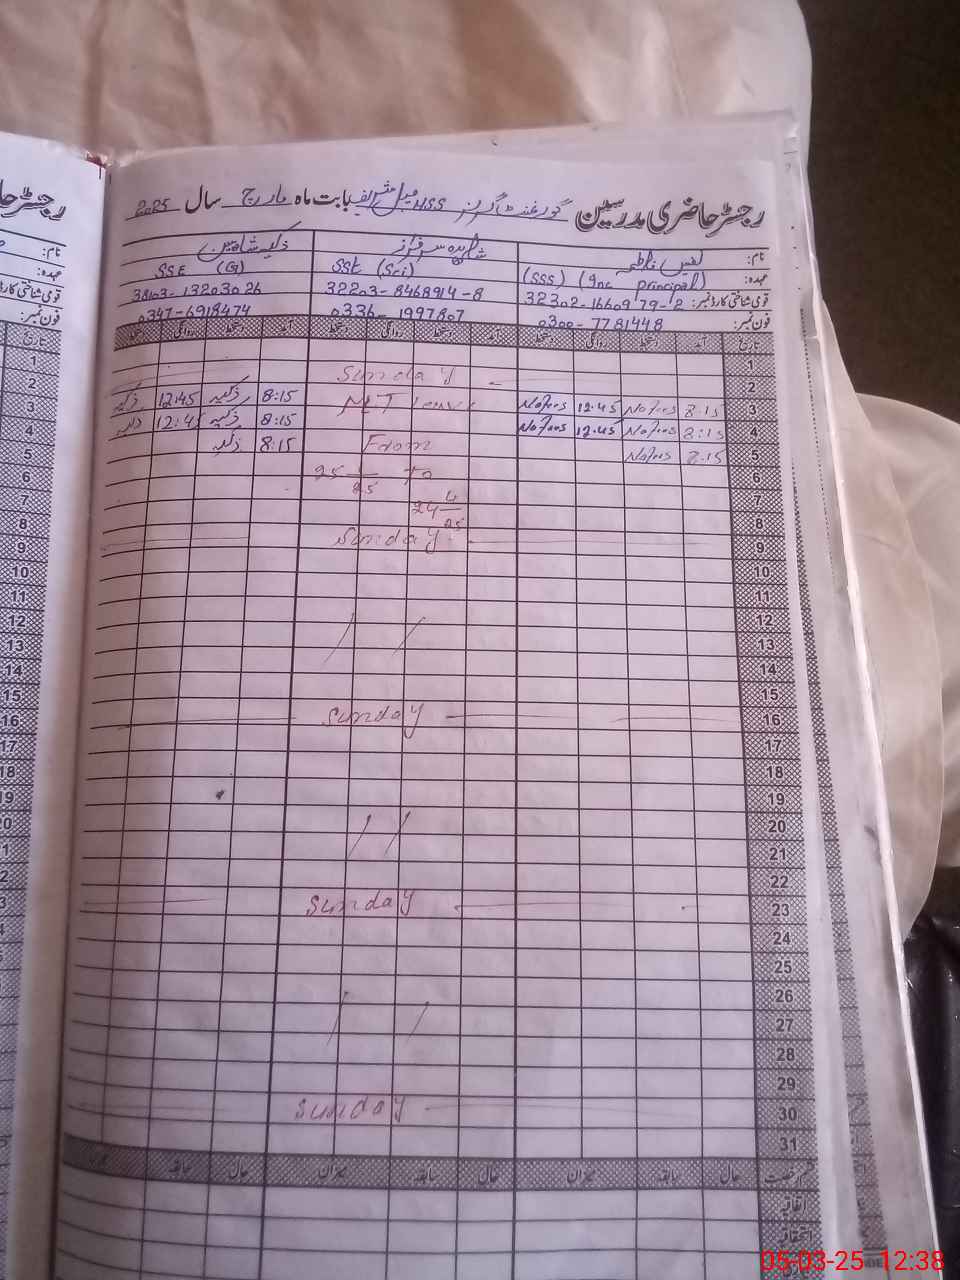 رجسٹر حاضری مدرسین گورنمنٹ گرلز HSS میل شریف بابت ماہ مارچ سال 2025
نام: نفیس فاطمہ شاہدہ سرفراز ذکیہ شاہین
عہدہ: (SSS) (Inc principal) SSE (Sci) SSE (G)
قومی شناختی کارڈ نمبر: 32302-1660979-2 32203-8468914-8 38103-13203026
فون نمبر: 0300-7781448 0336-1997807 0347-6918474
تاریخ آمد دستخط روانگی دستخط آمد دستخط روانگی دستخط آمد دستخط روانگی دستخط
1
2 Sunday
3 8:15 12.45 8:15 ذکیہ 12:45 ذکیہ
4 8:15 12.45 8:15 ذکیہ 12:45
5 8.15 From 8:15 ذکیہ
6 25 1/25 To
7 24 4/25
8
9 Sunday
10
11
12
13 / /
14
15
16 Sunday
17
18
19
20 / /
21
22
23 Sunday
24
25
26
27 / /
28
29
30 Sunday
31
حال سابقہ میزان حال سابقہ میزان حال سابقہ
اتفاقیہ
05-03-25 12:38